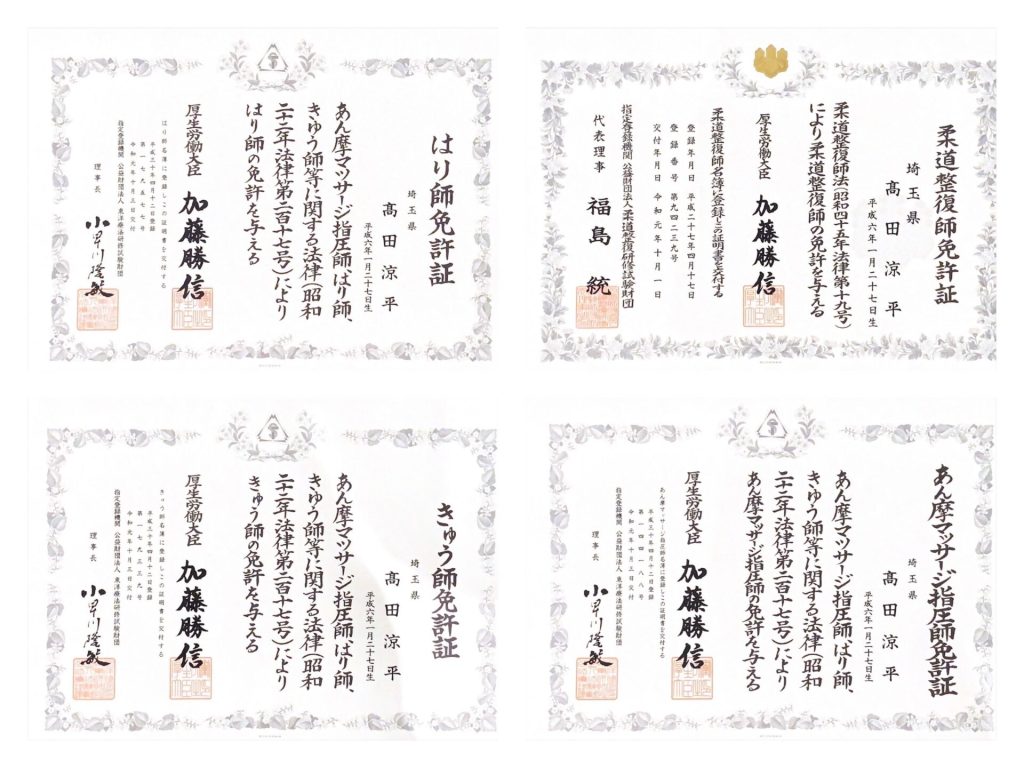 はり師免許証
埼玉県
髙田涼平
平成六年一月二十七日生
あん摩マツサージ指圧師、はり師、
きゆう師等に関する法律(昭和
二十二年法律第二百十七号)により
はり師の免許を与える
厚生労働大臣 加藤勝信
はり師名簿に登録しこの証明書を交付する
平成三十年四月十二日登録
第一七九五七七号
令和元年十月三日交付
指定登録機関 公益財団法人 東洋療法研修試験財団
理事長 小早川隆敏
柔道整復師免許証
埼玉県
髙田涼平
平成六年一月二十七日生
柔道整復師法(昭和四十五年法律第十九号)
により柔道整復師の免許を与える
厚生労働大臣 加藤勝信
柔道整復師名簿に登録しこの証明書を交付する
登録年月日 平成二十七年四月十七日
登録番号 第九四二三九号
交付年月日 令和元年十月一日
指定登録機関 公益財団法人柔道整復研修試験財団
代表理事 福島統
きゅう師免許証
埼玉県
髙田涼平
平成六年一月二十七日生
あん摩マツサージ指圧師、はり師、
きゆう師等に関する法律(昭和
二十二年法律第二百十七号)により
きゅう師の免許を与える
厚生労働大臣 加藤勝信
きゅう師名簿に登録しこの証明書を交付する
平成三十年四月十二日登録
第一七九三三九号
令和元年十月三日交付
指定登録機関 公益財団法人 東洋療法研修試験財団
理事長 小早川隆敏
あん摩マッサージ指圧師免許証
埼玉県
髙田涼平
平成六年一月二十七日生
あん摩マツサージ指圧師、はり師、
きゆう師等に関する法律(昭和
二十二年法律第二百十七号)により
あん摩マッサージ指圧師の免許を与える
厚生労働大臣 加藤勝信
あん摩マッサージ指圧師名簿に登録しこの証明書を交付する
平成三十年四月十二日登録
令和元年十月三日交付
指定登録機関 公益財団法人 東洋療法研修試験財団
理事長 小早川隆敏